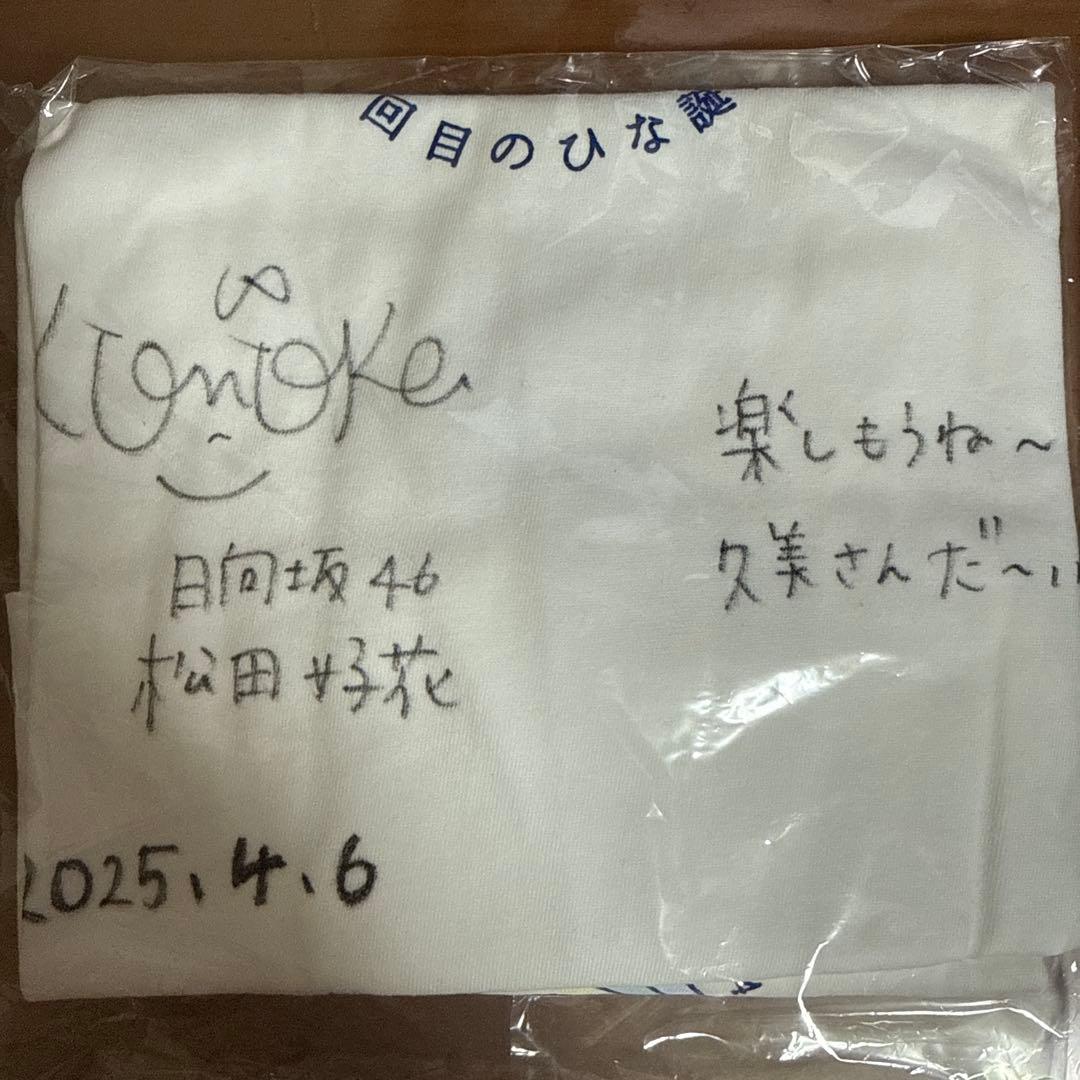 回目のひな誕
Konoka
楽しもうね〜
久美さんだ〜!!
日向坂46
松田好花
2025、4、6